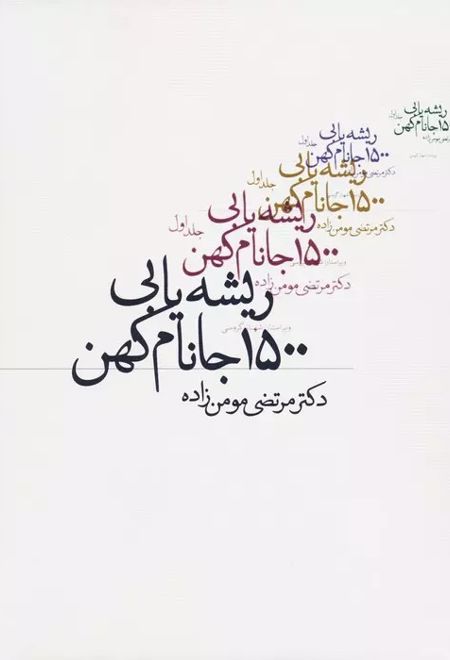 ریشه‌یابی
جلد اول
جانام کهن
ریشه‌یابی
جلد اول
۱۵۰۰ جانام کهن
دکتر مرتضی
ریشه‌یابی
جلد اول
۱۵۰۰ جانام کهن
دکتر مرتضی مومن‌زاده
ریشه‌یابی
جلد اول
۱۵۰۰ جانام کهن
دکتر مرتضی مومن‌زاده
ریشه‌یابی
۱۵۰۰ جانام کهن
دکتر مرتضی مومن‌زاده